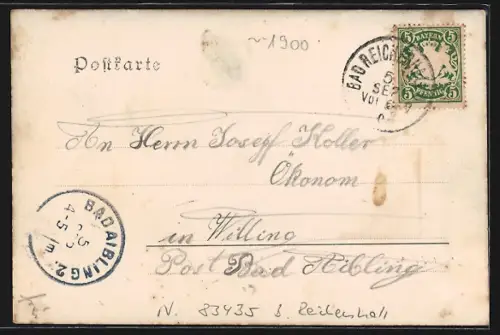 ~1900
Postkarte
5 BAYERN 5
5 PFENNIG 5
BAD REICHENH
5
SEP
An Herrn Josef Koller
Ökonom
in Willing
Post Bad Aibling
BAD AIBLING 2.
N. 83435 b. Reichenhall